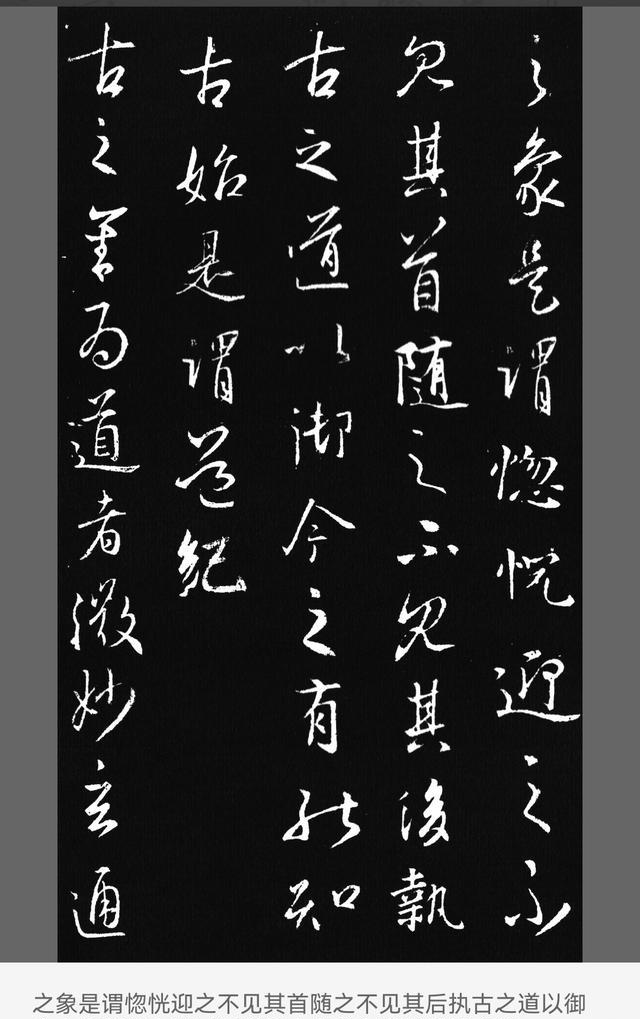 之象是谓惚恍迎之不
见其首随之不见其後執
古之道以御今之有能知
古始是谓道纪
古之善为道者微妙玄通
之象是谓惚恍迎之不见其首随之不见其后执古之道以御